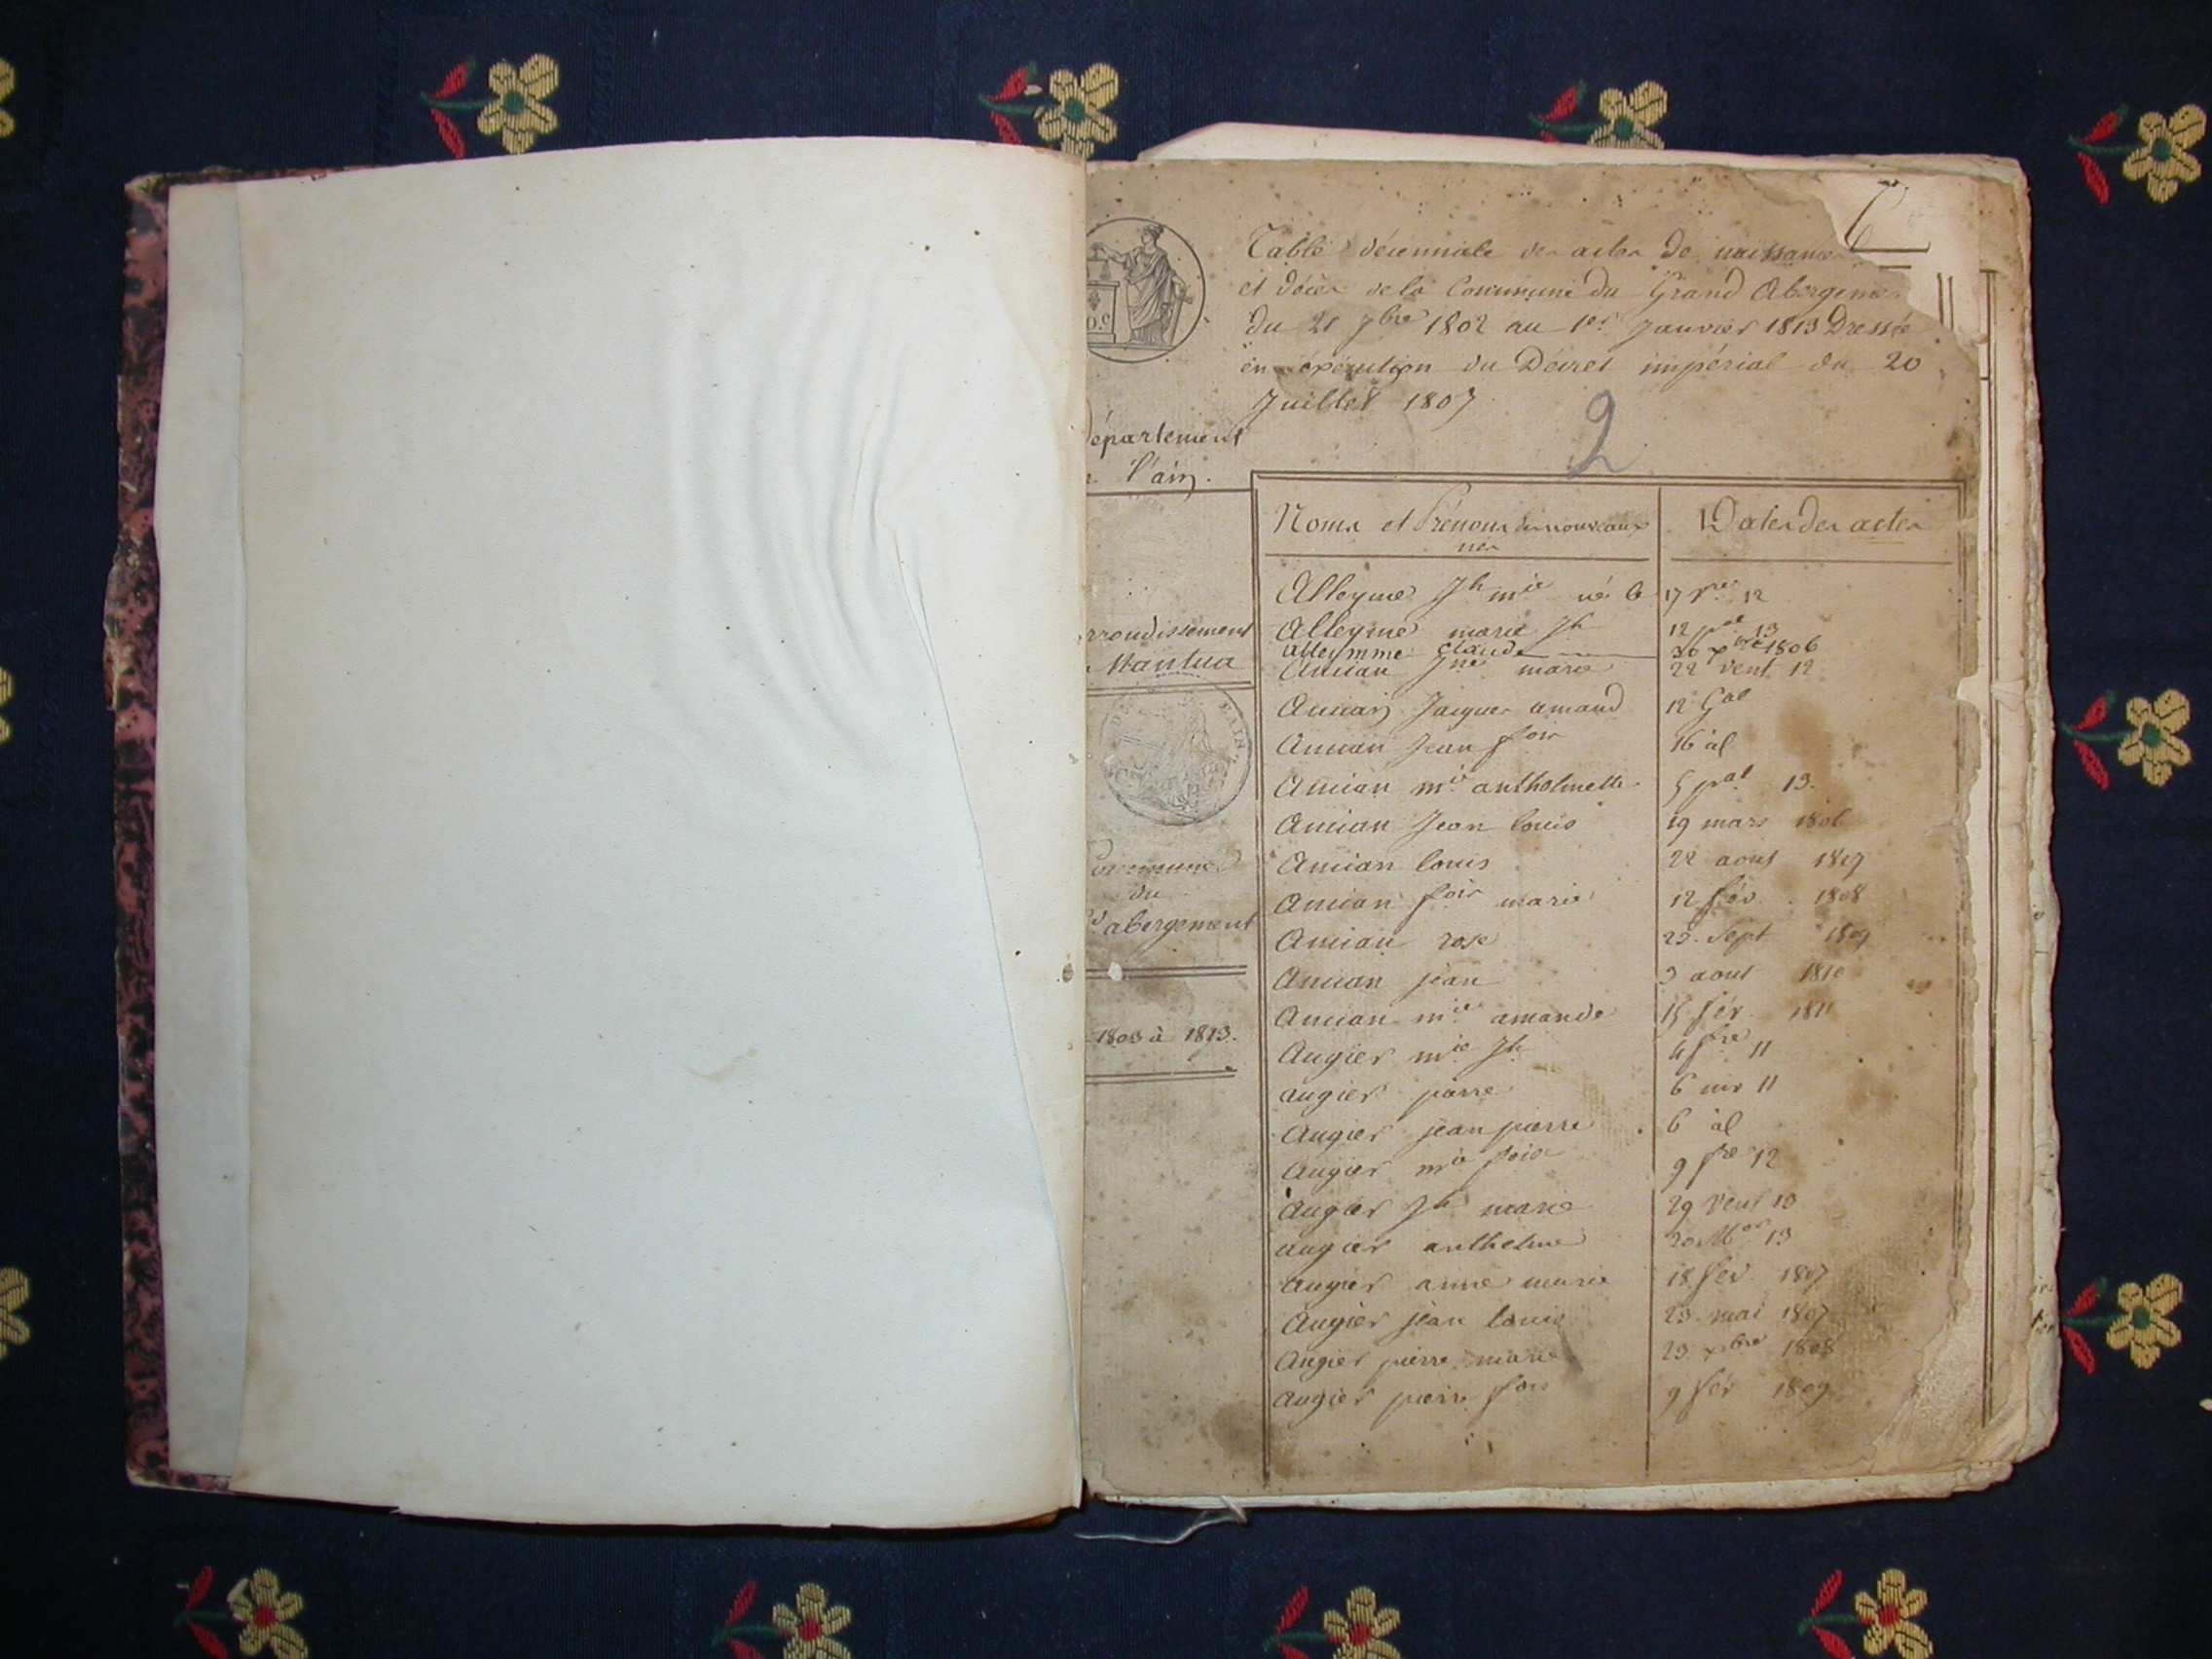 Table décennale des actes de naissance
et décès de la Commune du Grand Abergeme
du 21 7bre 1802 au 1er Janvier 1813 Dressée
en exécution du Décret impérial du 20
Juillet 1807
2
épartement
l'ain.
rrondissement
Nantua
commune
du
abergement
1803 à 1813.
Noms et Prénoms des nouveaux
nés
Dates des actes
Alleyme Jh mie né le 17 12
Alleyme marie Jh 12 pal 13
alleymme Claude 26 xbre 1806
Amian Jne marie 22 vent 12
Amian Jacques amand 12 Gal
Amian Jean fois 16 al
Amian mie anthelmette 5 pal 13.
Amian Jean louis 19 mars 1806
Amian louis 22 aout 1807
Amian fois marie 12 fév. 1808
Amian rose 23. Sept 1809
Amian jean 3 aout 1810
Amian mie amande 15 fév. 1811
Augier mie Jh 4 fre 11
augier pierre 6 niv 11
Augier jean pierre 6 al
Augier mie foise 9 fre 12
Augier Jh marie 29 vent 13
augier anthelme 20 Mor 13
Augier anne marie 18 fev 1807
Augier jean louis 23. mai 1807
Augier pierre marie 23 xbre 1808
augier pierre fois 9 fév 1809